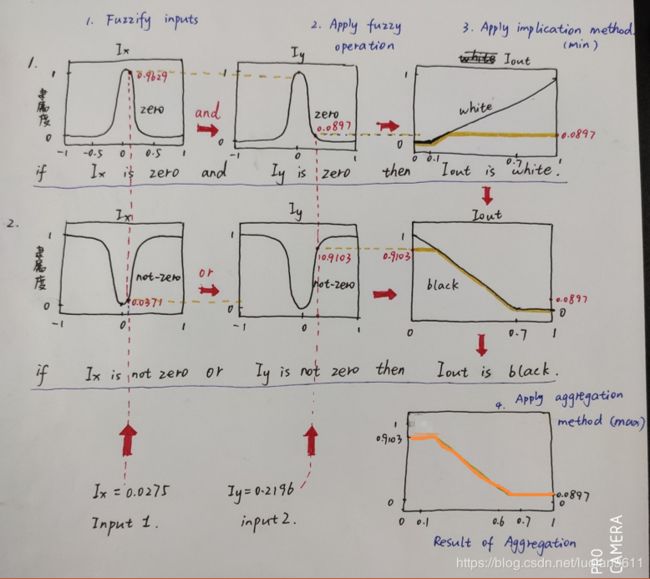 1. Fuzzify inputs
2. Apply fuzzy operation
3. Apply implication method. (min)
1.
Ix
Iy
Iout
隶属度
1
0.9629
zero
0
-1 -0.5 0 0.5 1
and
1
zero
0.0897
0
-1 0 1
1
white
0.0897
0
0 0.1 0.7 1
if Ix is zero and Iy is zero then Iout is white.
2.
Ix
Iy
Iout
隶属度
1
not-zero
0.0371
0
-1 0 1
or
1
0.9103
not-zero
0
-1 0 1
1
0.9103
black
0.0897
0
0 0.7 1
if Ix is not zero or Iy is not zero then Iout is black.
4. Apply aggregation method (max)
1
0.9103
0
0.0897
0 0.1 0.6 0.7 1
Result of Aggregation
Ix = 0.0275
Input 1.
Iy = 0.2196
input 2.
PRO CAMERA